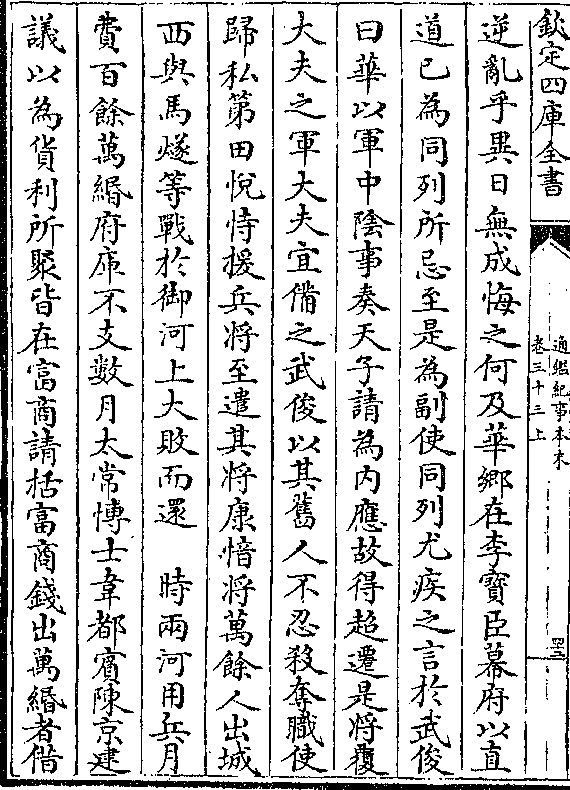 欽定四庫全書
通鑑紀事本末
卷三十三上
逆亂乎異日無成悔之何及華鄉在李寶臣幕府以直
道已為同列所忌至是為副使同列尤疾之言於武俊
曰華以軍中陰事奏天子請為内應故得超遷是將覆
大夫之軍大夫宜備之武俊以其舊人不忍殺奪職使
歸私第田悅恃援兵將至遣其將康愔將萬餘人出城
西與馬燧等戰於御河上大敗而還　時兩河用兵月
費百餘萬緡府庫不支數月太常博士韋都賓陳京建
議以為貨利所聚皆在富商請括富商錢出萬緡者借